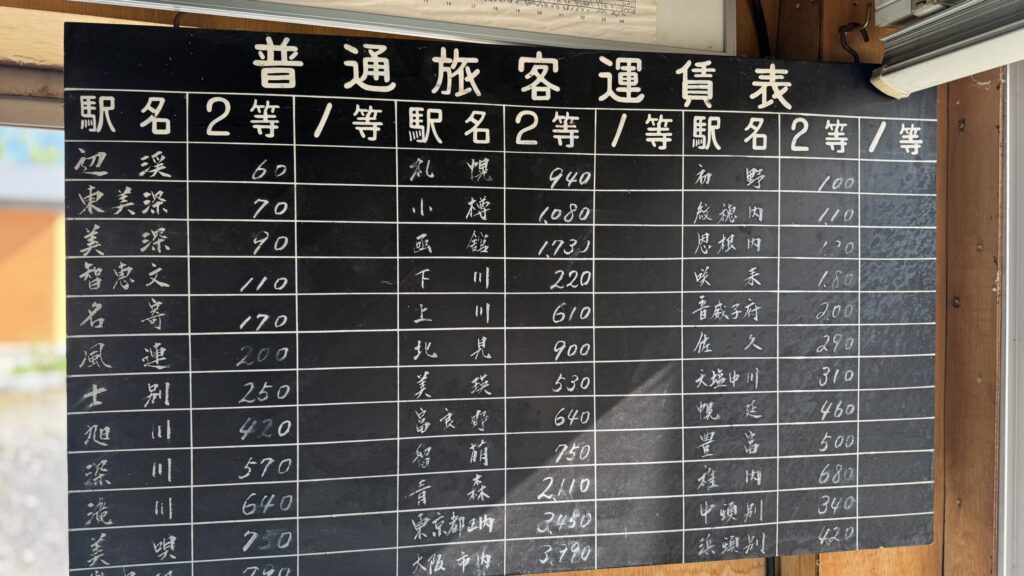 普通旅客運賃表
駅名 2等 1等 駅名 2等 1等 駅名 2等 1等
初渓 60 札幌 940 初野 100
東美深 70 小樽 1,080 啟徳内 110
美深 90 函舘 1,730 恩根内
智恵文 110 下川 220 咲来 180
名寄 170 上川 610 音威子府 200
風連 200 北見 900 佐久 290
士別 250 美瑛 530 天塩中川 310
旭川 420 富良野 640 幌延 460
深川 570 留萌 750 豊富 500
滝川 640 青森 2,110 稚内 680
美唄 東京都区内 3,450 中頓別 340
790 大阪市内 3,990 浜頓別 420